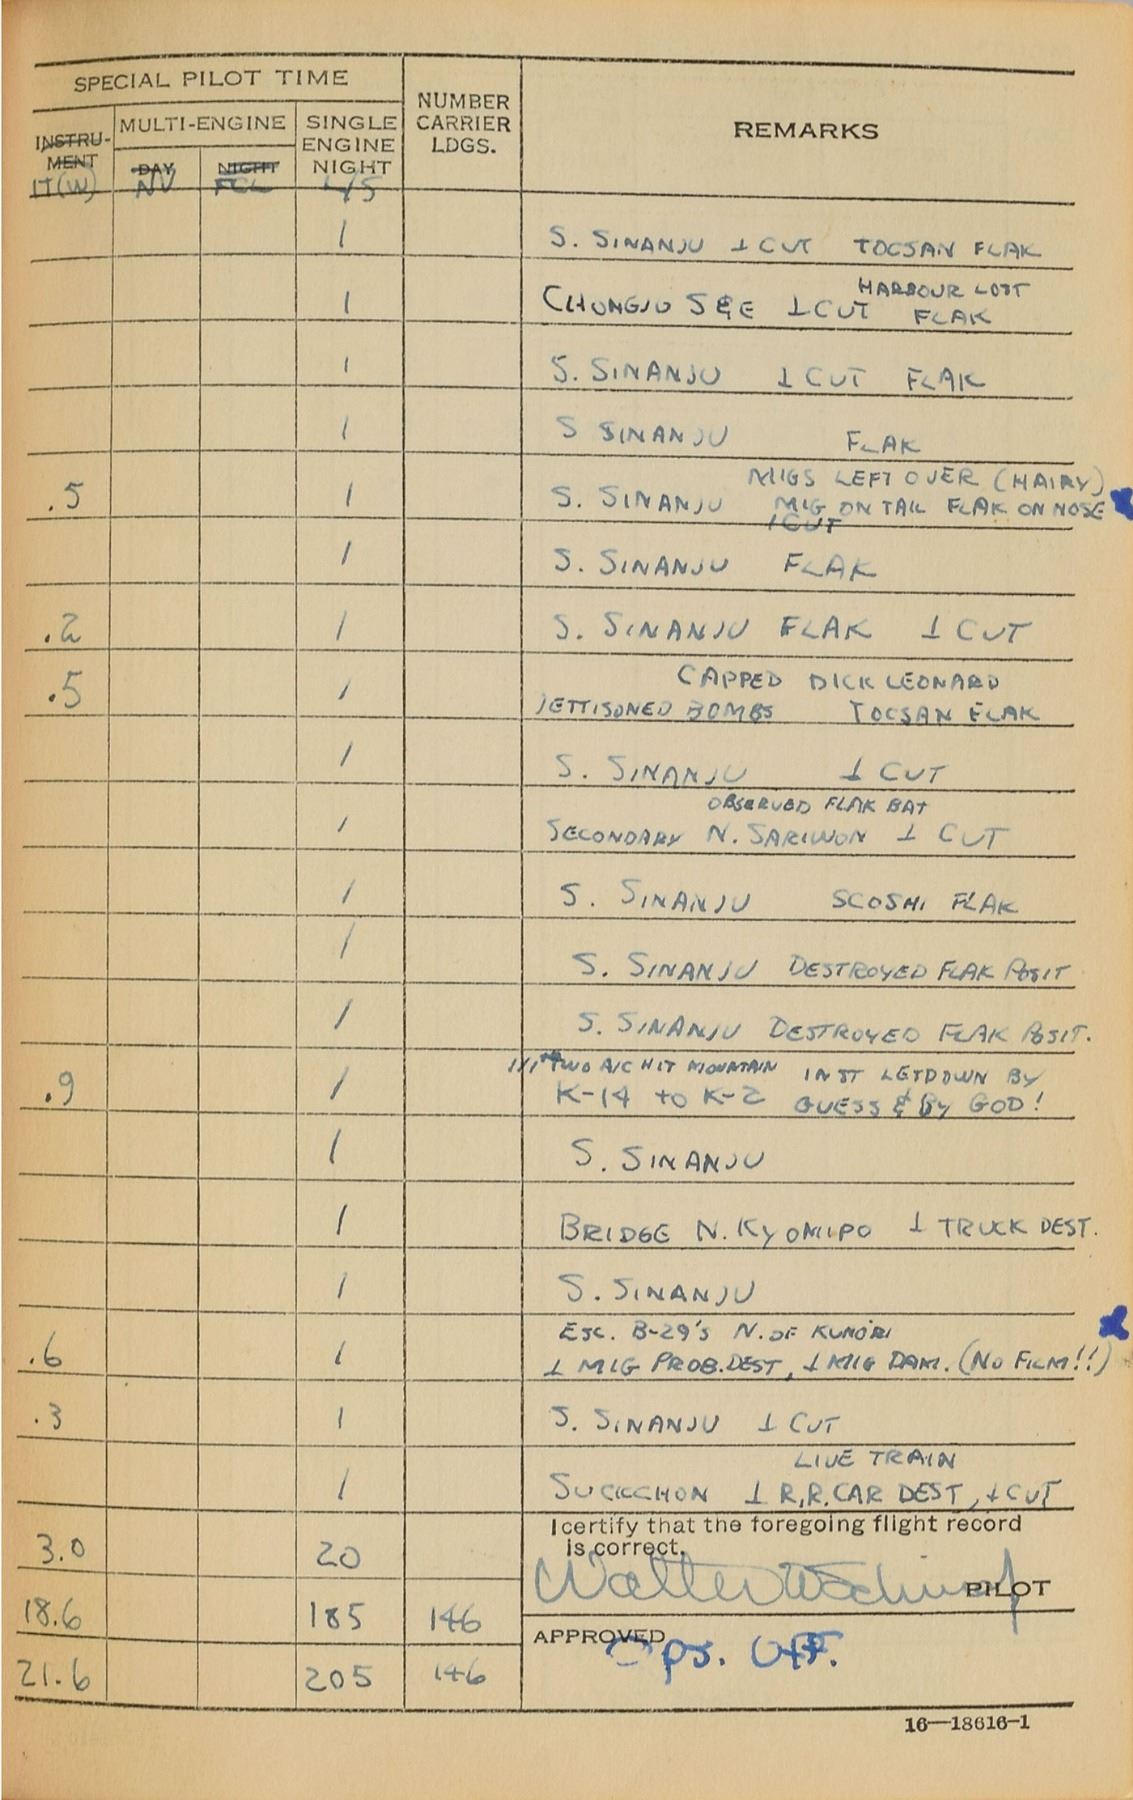 SPECIAL PILOT TIME
INSTRU-
MENT
IT(W)
MULTI-ENGINE
DAY
NV
NIGHT
FCL
SINGLE
ENGINE
NIGHT
L/S
NUMBER
CARRIER
LDGS.
REMARKS
1 S. SINANJU 1 CUT TOCSAN FLAK
HARBOUR LOST
1 CHONGJU S&E 1 CUT FLAK
1 S. SINANJU 1 CUT FLAK
1 S SINANJU FLAK
MIGS LEFT OVER (HAIRY)
.5 1 S. SINANJU MIG ON TAIL FLAK ON NOSE
1 CUT
1 S. SINANJU FLAK
.2 1 S. SINANJU FLAK 1 CUT
CAPPED DICK LEONARD
.5 1 JETTISONED BOMBS TOCSAN FLAK
1 S. SINANJU 1 CUT
OBSERVED FLAK BAT
1 SECONDARY N. SARIWON 1 CUT
1 S. SINANJU SCOSHI FLAK
1 S. SINANJU DESTROYED FLAK POSIT
1 S. SINANJU DESTROYED FLAK POSIT.
TWO A/C HIT MOUNTAIN INST LETDOWN BY
.9 1 K-14 TO K-2 GUESS & BY GOD!
1 S. SINANJU
1 BRIDGE N. KYOMIPO 1 TRUCK DEST.
1 S. SINANJU
ESC. B-29'S N. OF KUNORI
.6 1 1 MIG PROB. DEST, 1 MIG DAM. (NO FILM!!)
.3 1 S. SINANJU 1 CUT
LIVE TRAIN
1 SUCKCHON 1 R.R. CAR DEST, 1 CUT
I certify that the foregoing flight record
is correct.
3.0 20
Walter W
PILOT
18.6 185 146
APPROVED
Ops. Off.
21.6 205 146
16—18616-1